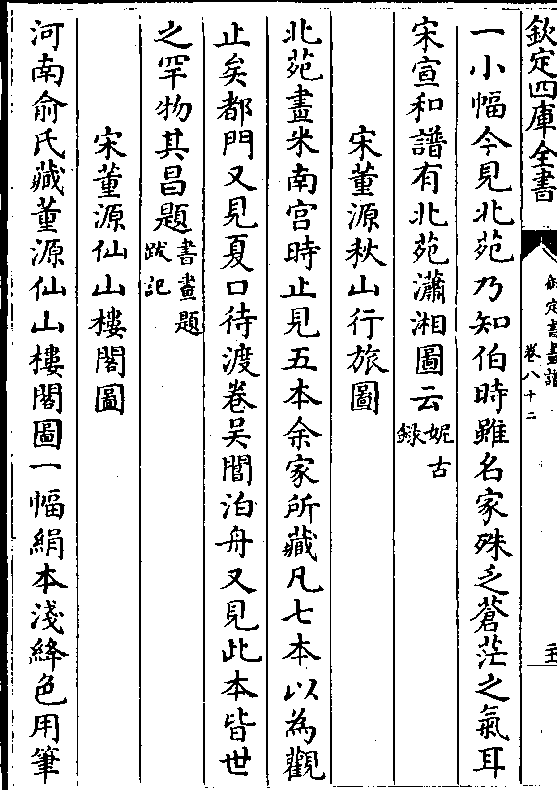 欽定四庫全書
卷八十二
一小幅今見北苑乃知伯時雖名家殊乏蒼茫之氣耳
宋宣和譜有北苑瀟湘圖云妮古録
宋董源秋山行旅圖
北苑畫米南宫時止見五本余家所藏凡七本以為觀
止矣都門又見夏口待渡卷吴閶泊舟又見此本皆世
之罕物其昌題書畫題跋記
宋董源仙山樓閣圖
河南俞氏藏董源仙山樓閣圖一幅絹本淺絳色用筆